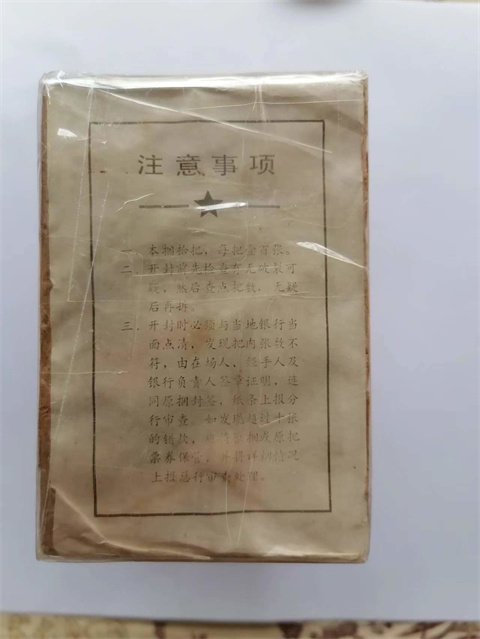 注意事项
一、本捆拾把，每把壹百张。
二、开封前先检查有无破裂可
疑，然后查点把数，无疑
后再拆。
三、开封时必须与当地银行当
面点清，发现把内张数不
符，由在场人，经手人及
银行负责人签章证明，连
同原捆封签，纸条上报分
行审查。如发现超过十张
的错款，应 捆或原把
票券保管，并将详细情况
上报总行审查处理。